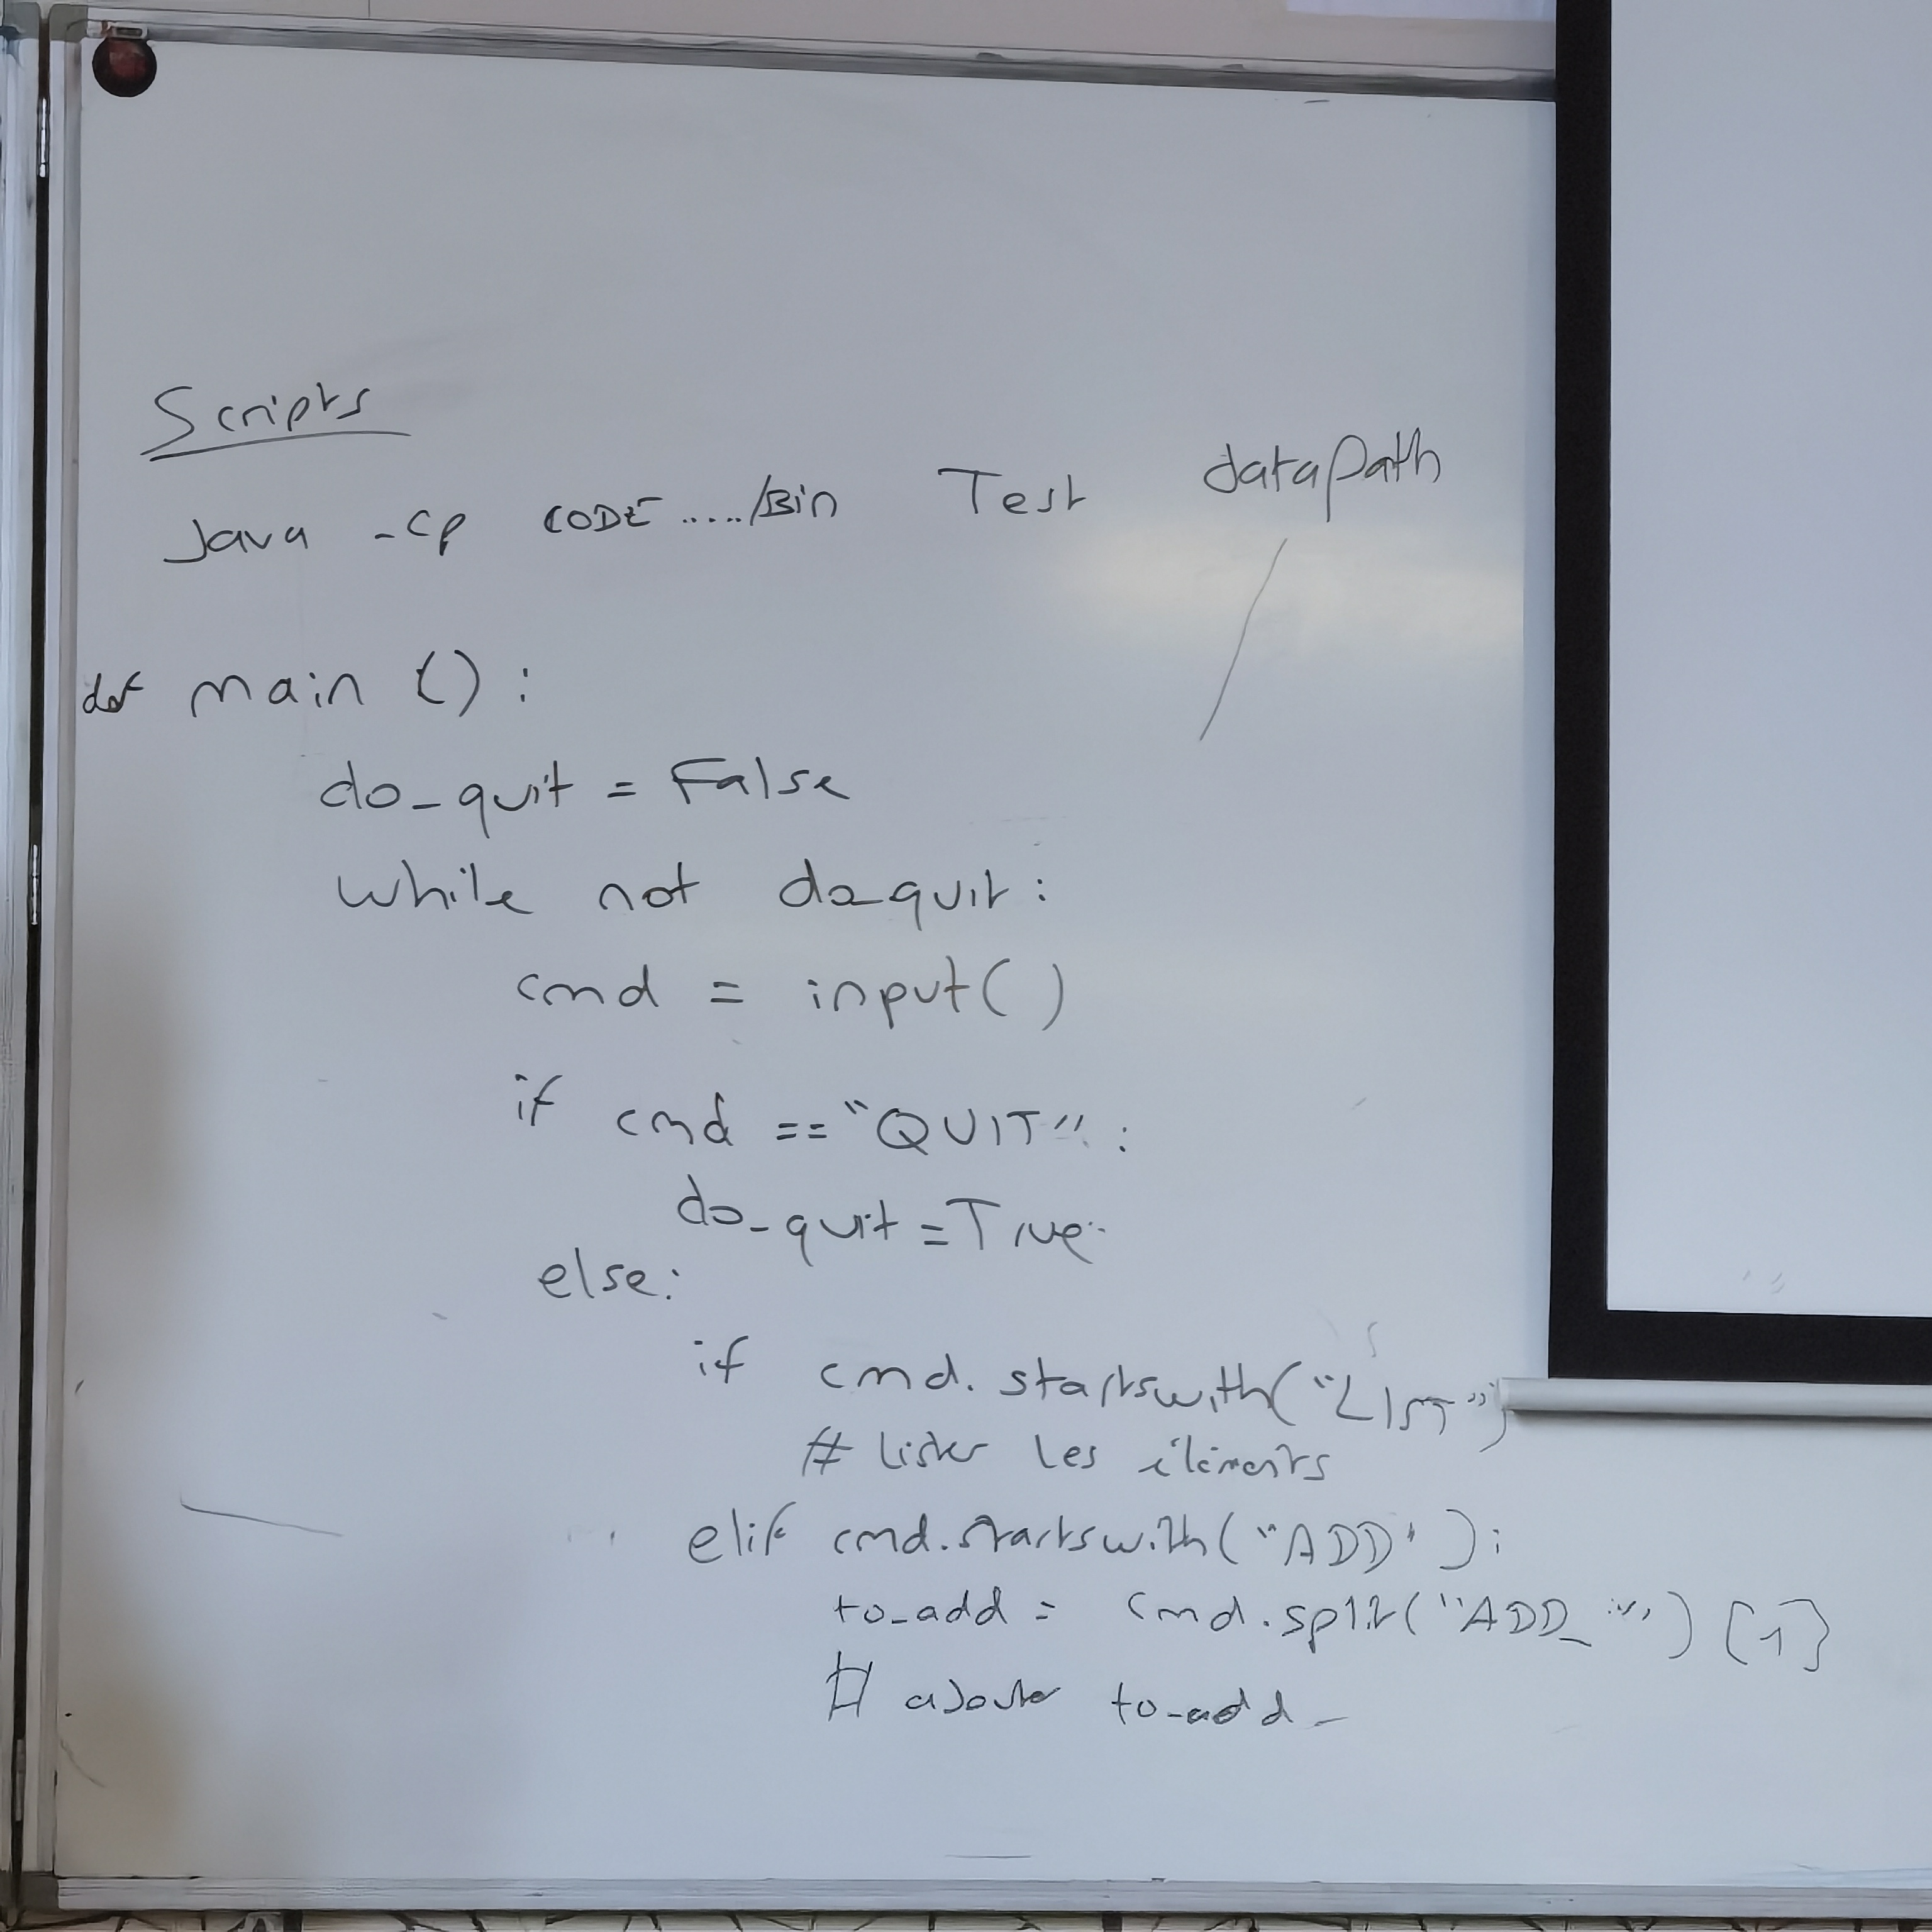 Scripts
Java -cp CODE...../Bin Test dataPath
def main ():
do_quit = False
while not do_quit:
cmd = input()
if cmd == "QUIT":
do_quit = True
else:
if cmd.startswith("LIST")
# lister les éléments
elif cmd.startswith("ADD"):
to_add = cmd.split("ADD_")[1]
# ajouter to_add